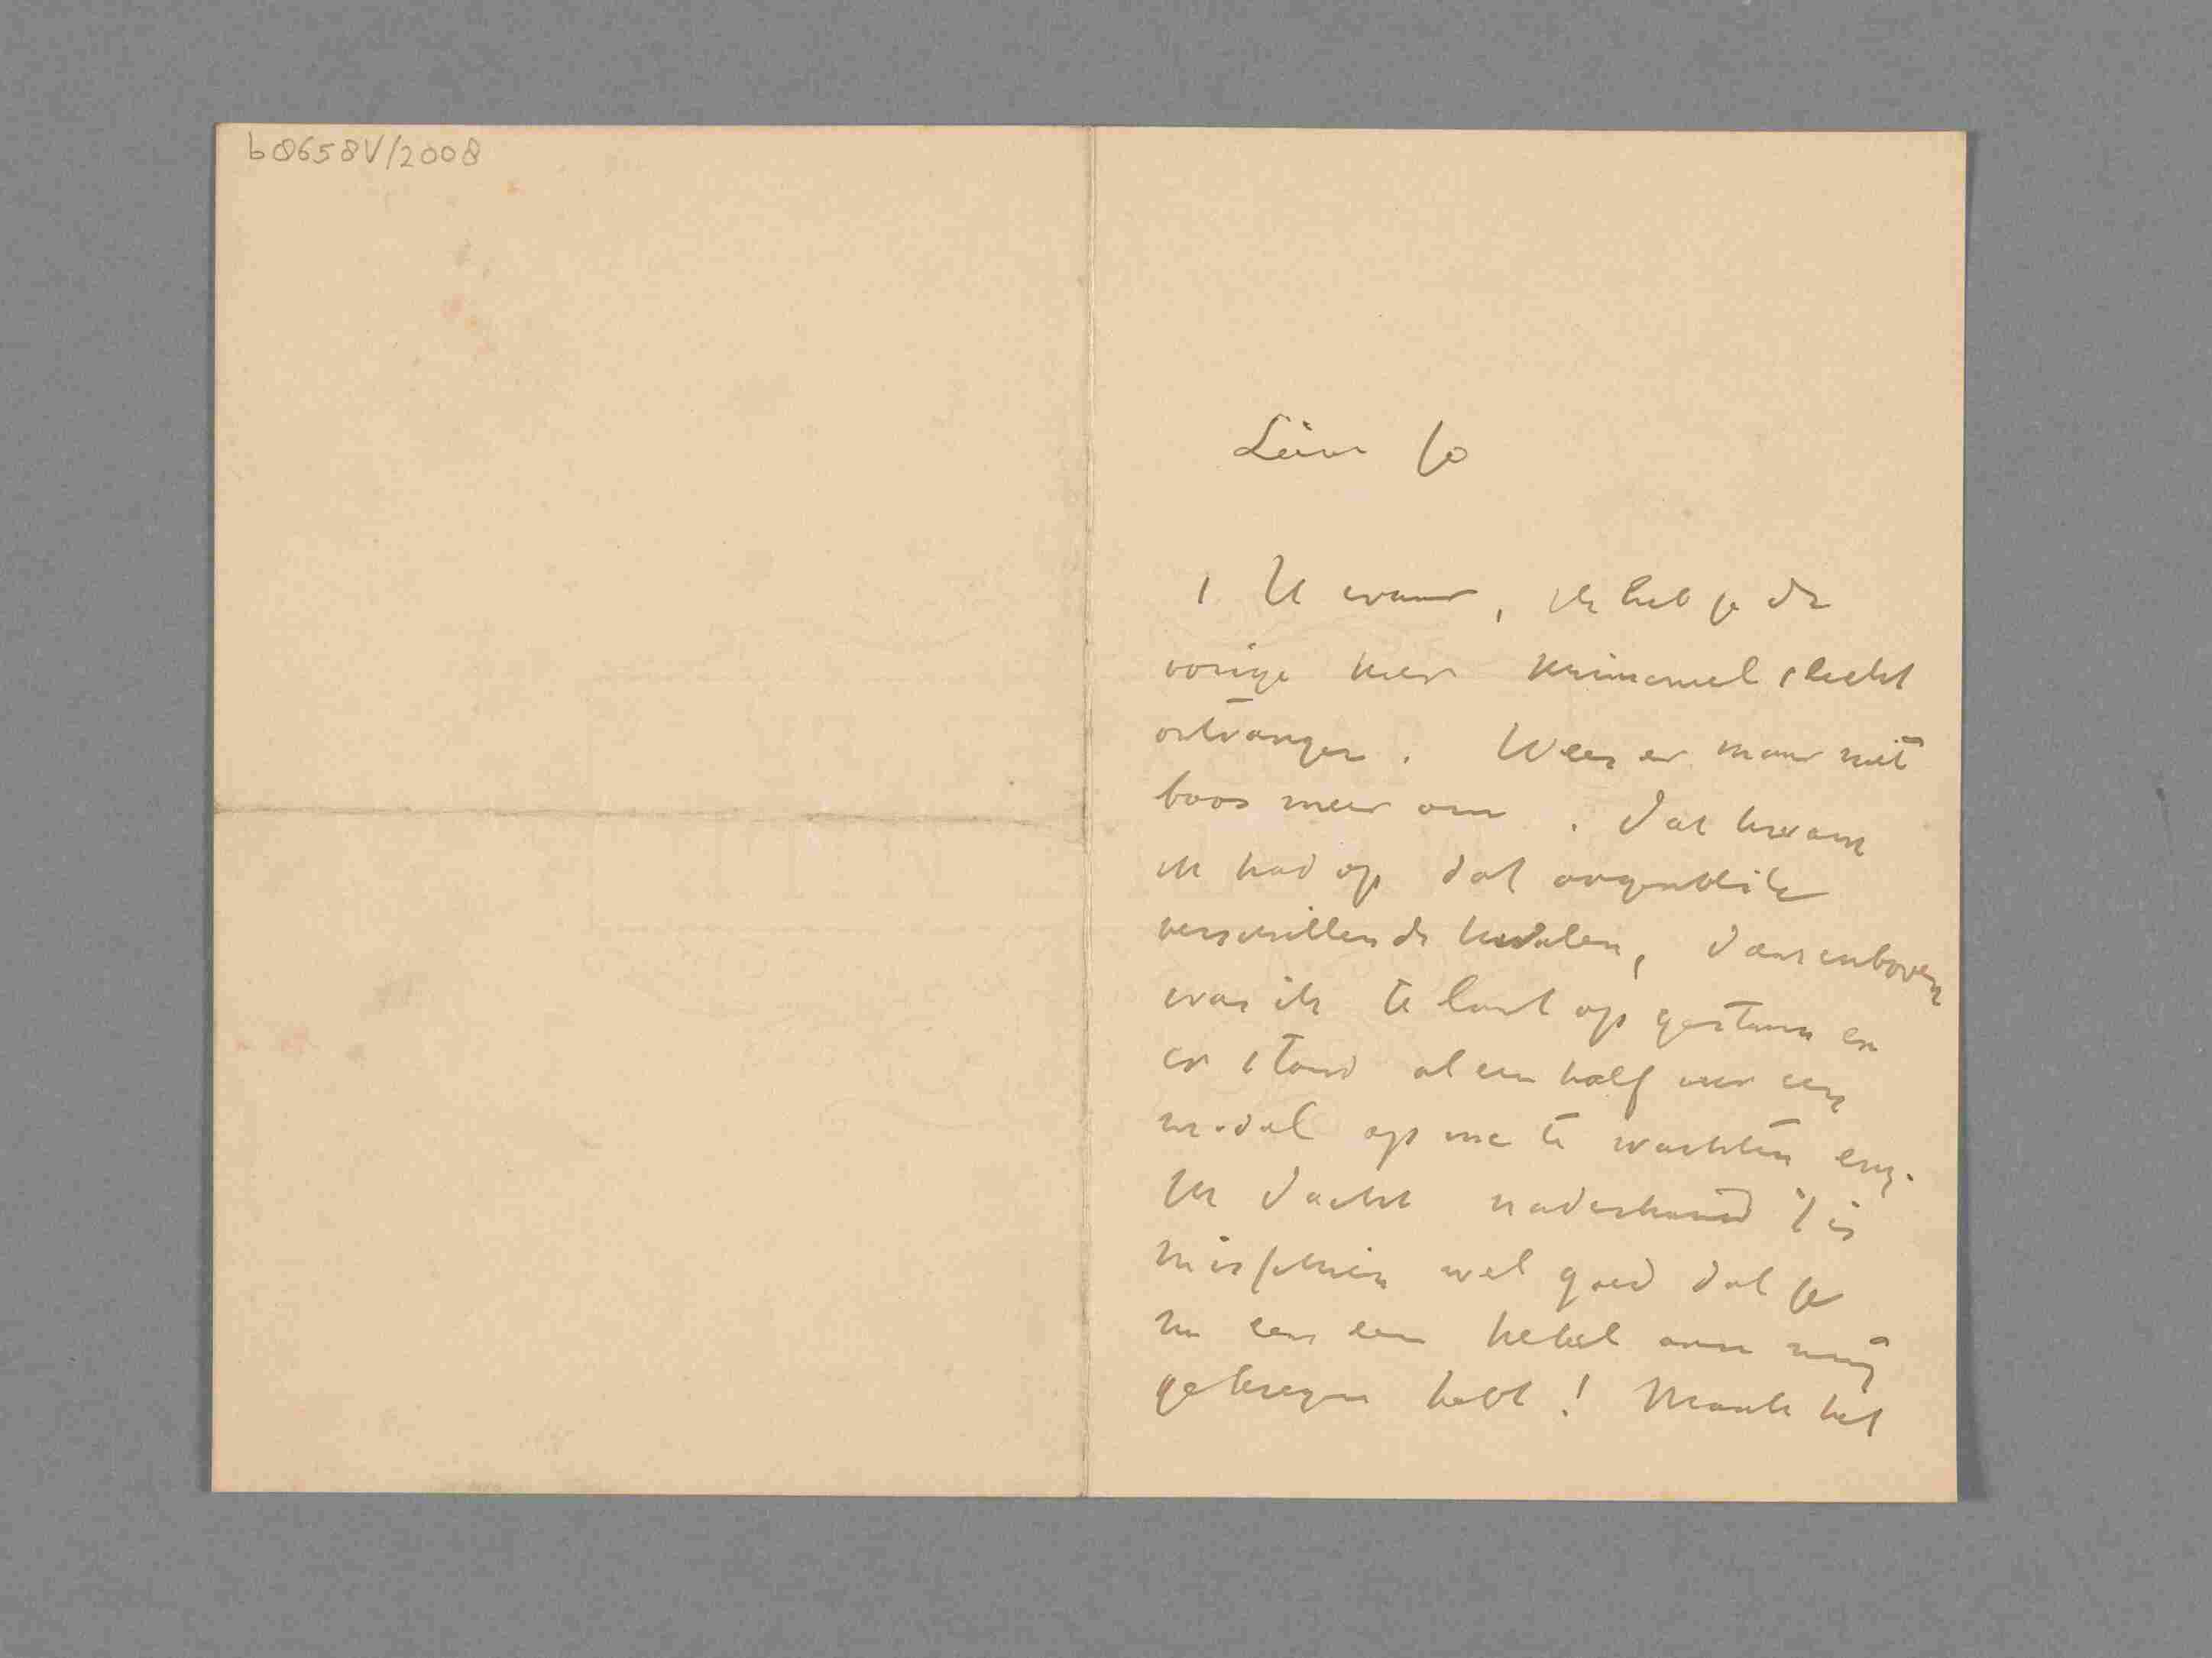 b8658V/2008
Lieve Jo
't Is waar, ik heb je de
vorige keer krimineel slecht
ontvangen. Wees er maar niet
boos meer om. Dat kwam
ik had op dat oogenblik
verschillende kwalen, daarenboven
was ik te laat op gestaan en
er stond al een half uur een
model op me te wachten enz.
Ik dacht naderhand 't is
misschien wel goed dat je
nu eens een hekel aan mij
gekregen hebt! Maak het